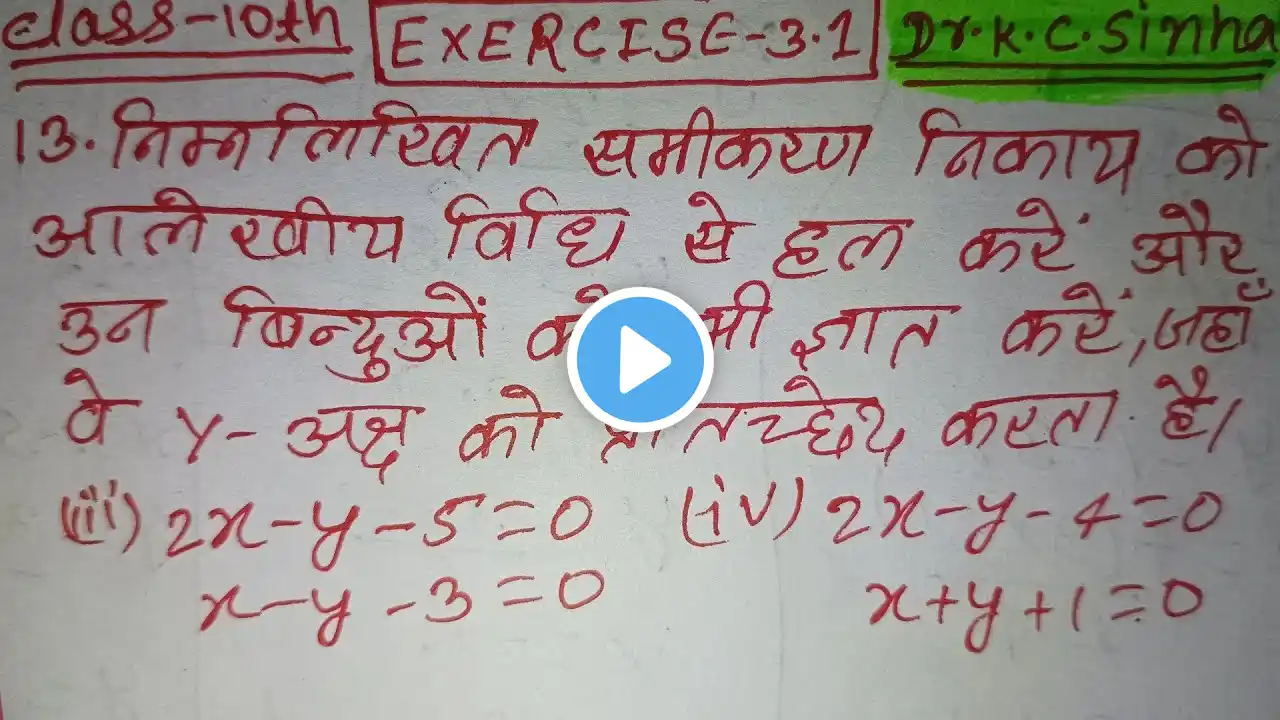 class-10th EXERCISE-3.1 Dr.K.C.Sinha
13. निम्नलिखित समीकरण निकाय को
आलेखीय विधि से हल करें और
उन बिन्दुओं भी ज्ञात करें, जहाँ
वे y-अक्ष को करता है।
(iii) 2x-y-5=0 (iv) 2x-y-4=0
x-y-3=0 x+y+1=0